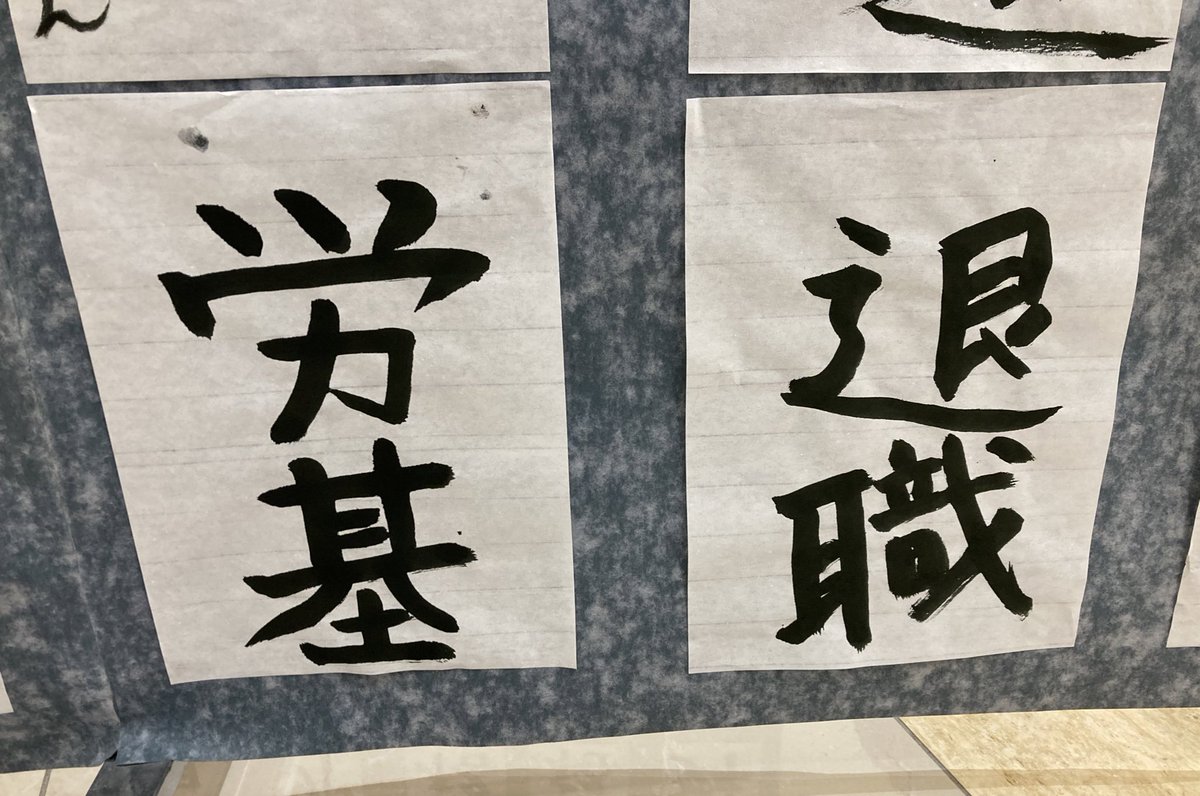 退職
労基